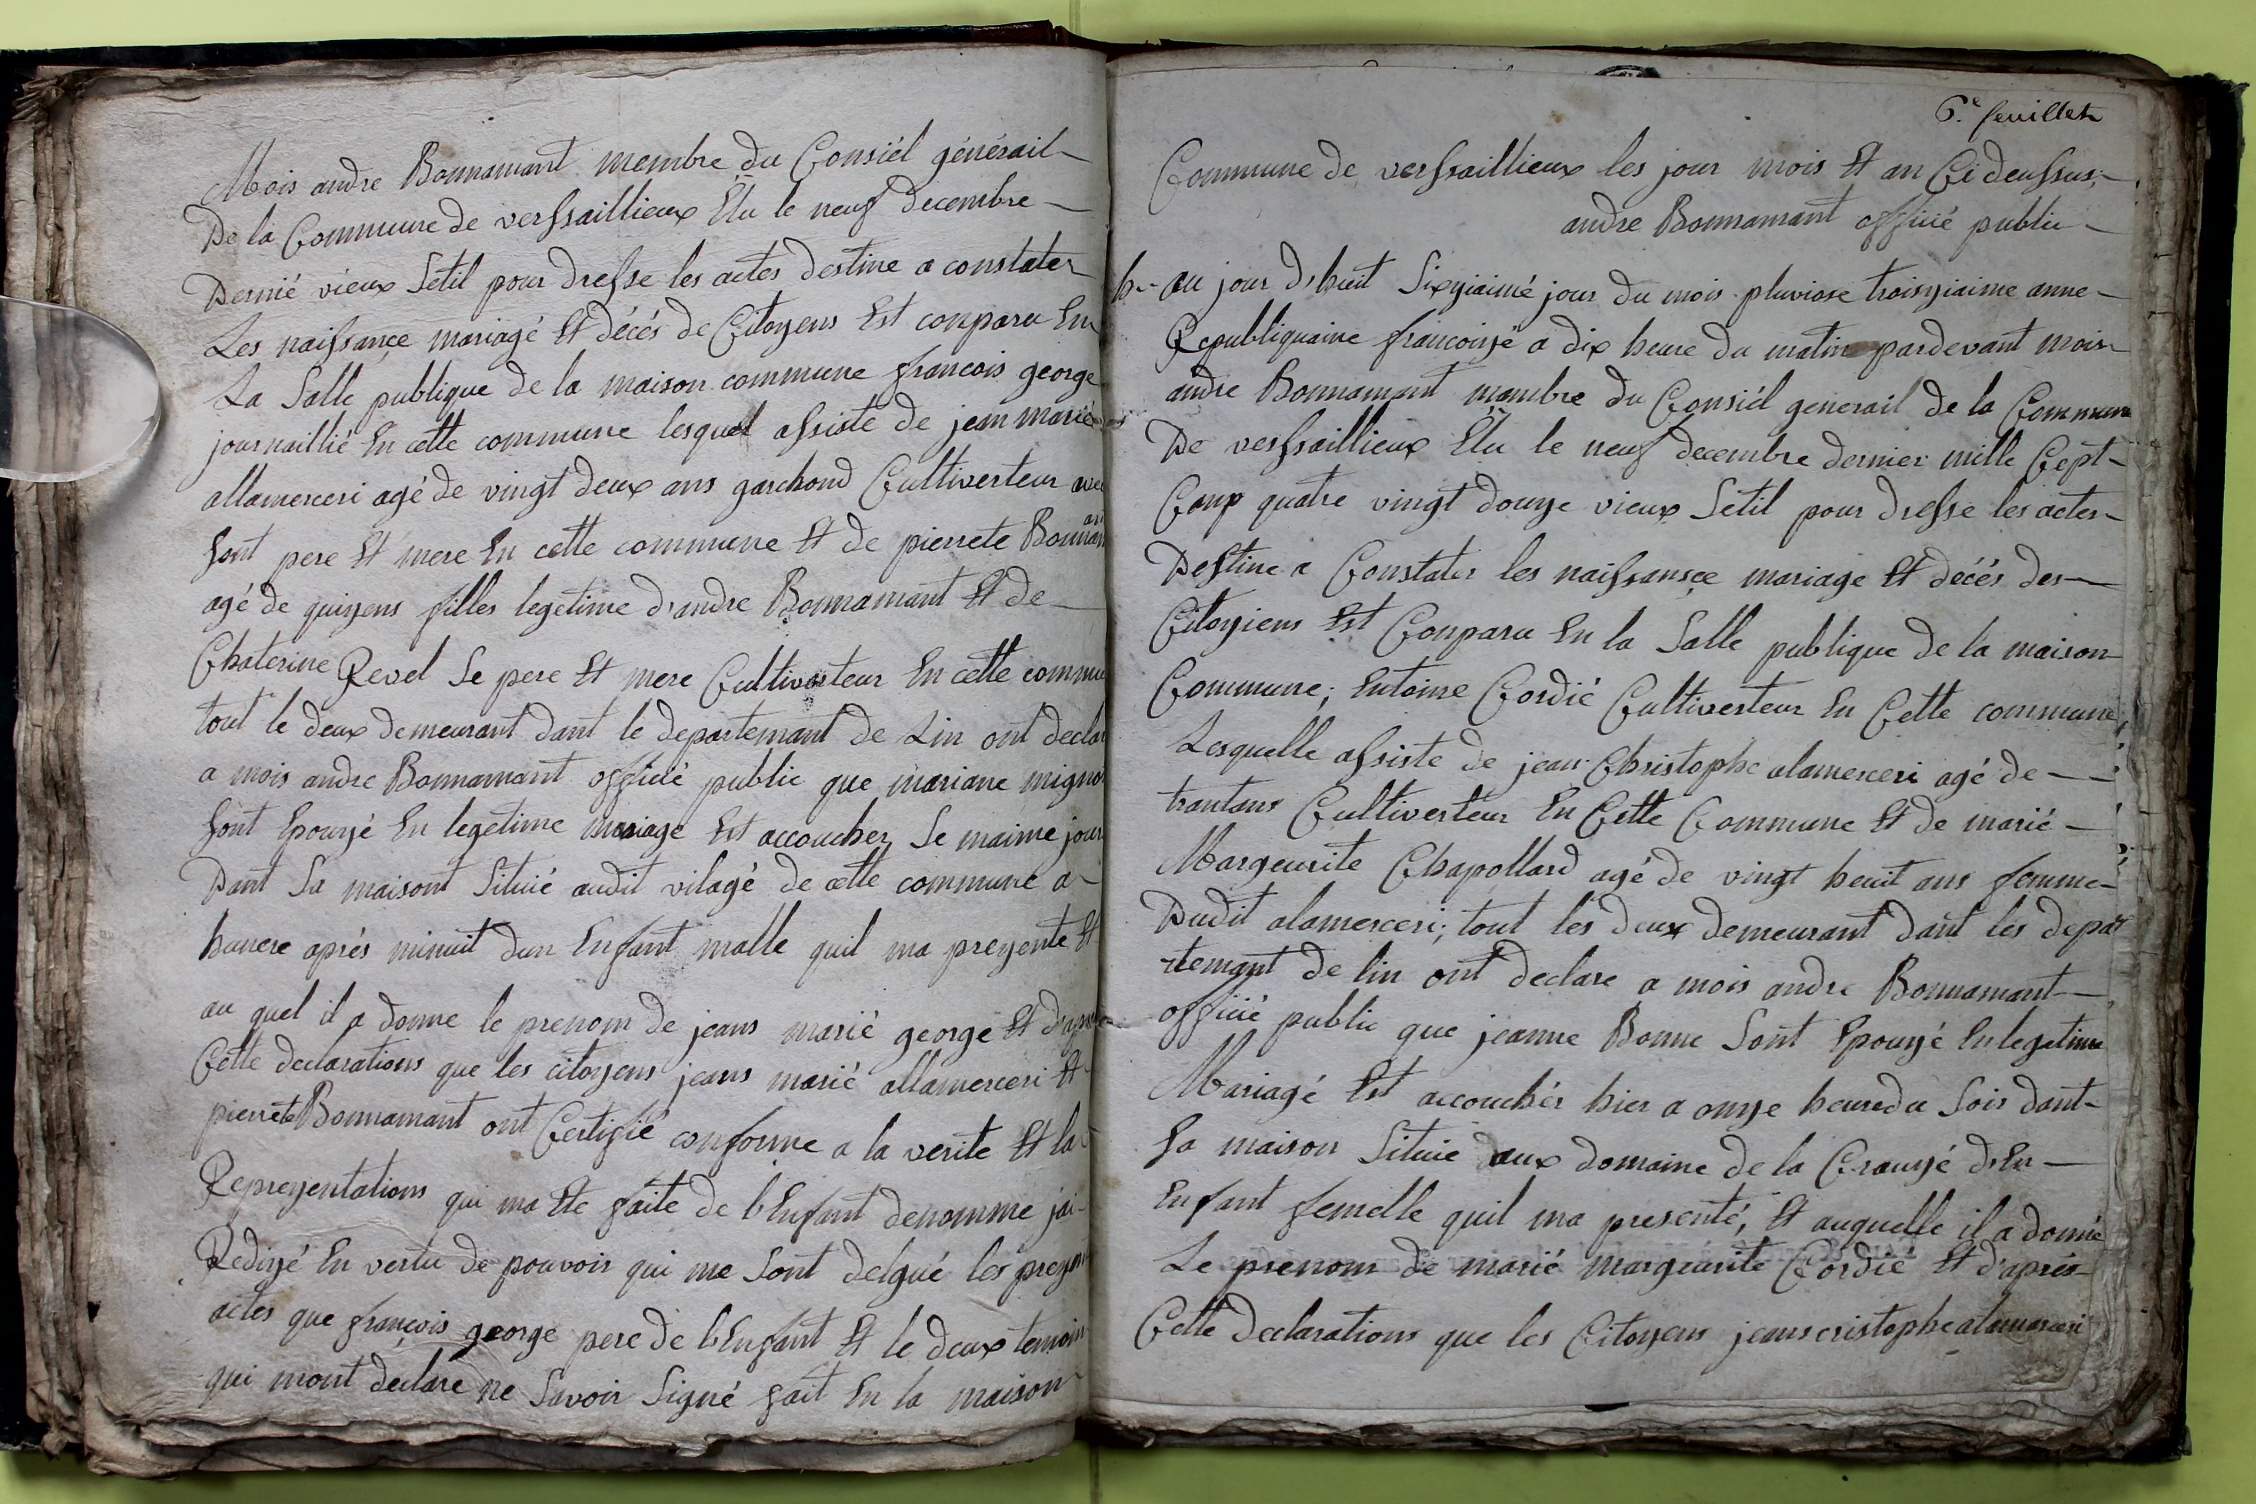 Mois andre Bonnamant membre du Consiél générail
De la Commune de verssaillieux Élu le neuf decembre
Dernié vieux Setil pour dresse les actes destine a constater
Les naissançe mariagé Et décés de Citoyens Est conparu En
La Salle publique de la maison commune francois george
journaillié En cette commune lesquel assiste de jean marié
allamerceri agé de vingt deux ans garchond Cultiverteur avec
sont pere Et mere En cette commune Et de pierrete Bonnamant
agé de quizens filles legetime d'andre Bonnamant Et de
Chaterine Revel Se pere Et mere Cultiverteur En cette commu
tout le deux demeurant dant le departemant de Lin ont declar
a mois andre Bonnamant officié public que mariane migno
sont Epouzé En legetime mariage Est accoucher Se maime jour
Dant Sa maisont Situié audit vilagé de cette commune a
hunere aprés minuit dun Enfant malle quil ma prezente Et
au quel il a donne le prenom de jeans marié george Et d'apre
Cette declarations que les citoyens jeans marié allamerceri Et
pierrete Bonnamant ont Certifié conforme a la verite Et la
Reprezentations qui ma Ete faite de l'Enfant denomme jai
Redizé En vertu de pouvoir qui me Sont delgué les prezen
actes que françois george pere de l'Enfant Et le deux temoin
qui mont declare ne Savoir Signé fait En la maison
6.e feuillet
Commune de verssaillieux les jour mois Et an Ci deussus;
andre Bonnamant officié public
h.- au jour d'huit Sixyiaimé jour du mois pluviose troisyiaime anne
Republiquaine francoize a dix heure du matin pardevant mois
andre Bonnamant mambre du Consiél generail de la Commune
De verssaillieux Élu le neuf decembre dernier mille Cept
Canp quatre vingt douze vieux Setil pour dresse les actes
Destine a Constater les naissansçe mariage Et décés des
Citoyiens Est Conparu En la Salle publique de la maison
Commune; Entoine Cordié Cultiverteur En Cette commune
Lesquelle assiste de jean Christophe alamerceri agé de
trantans Cultiverteur En Cette Commune Et de marié
Margeurite Chapollard agé de vingt heuit ans femme
Dudit alamerceri; tout les deux demeurant dant les depar
-temant de lin ont declare a mois andre Bonnamant
officié public que jeanne Bonne Sont Epouzé En legetime
Mariagé Est accouchér hier a onze heure du Soir dant
Sa maison Situie aux domaine de la Granzé d'En
Enfant femelle quil ma presenté, Et auquelle il a donné
Le prenom de marié margeurite Cordié Et d'aprés
Cette declarations que les Citoyens jeans cristophe alamerceri